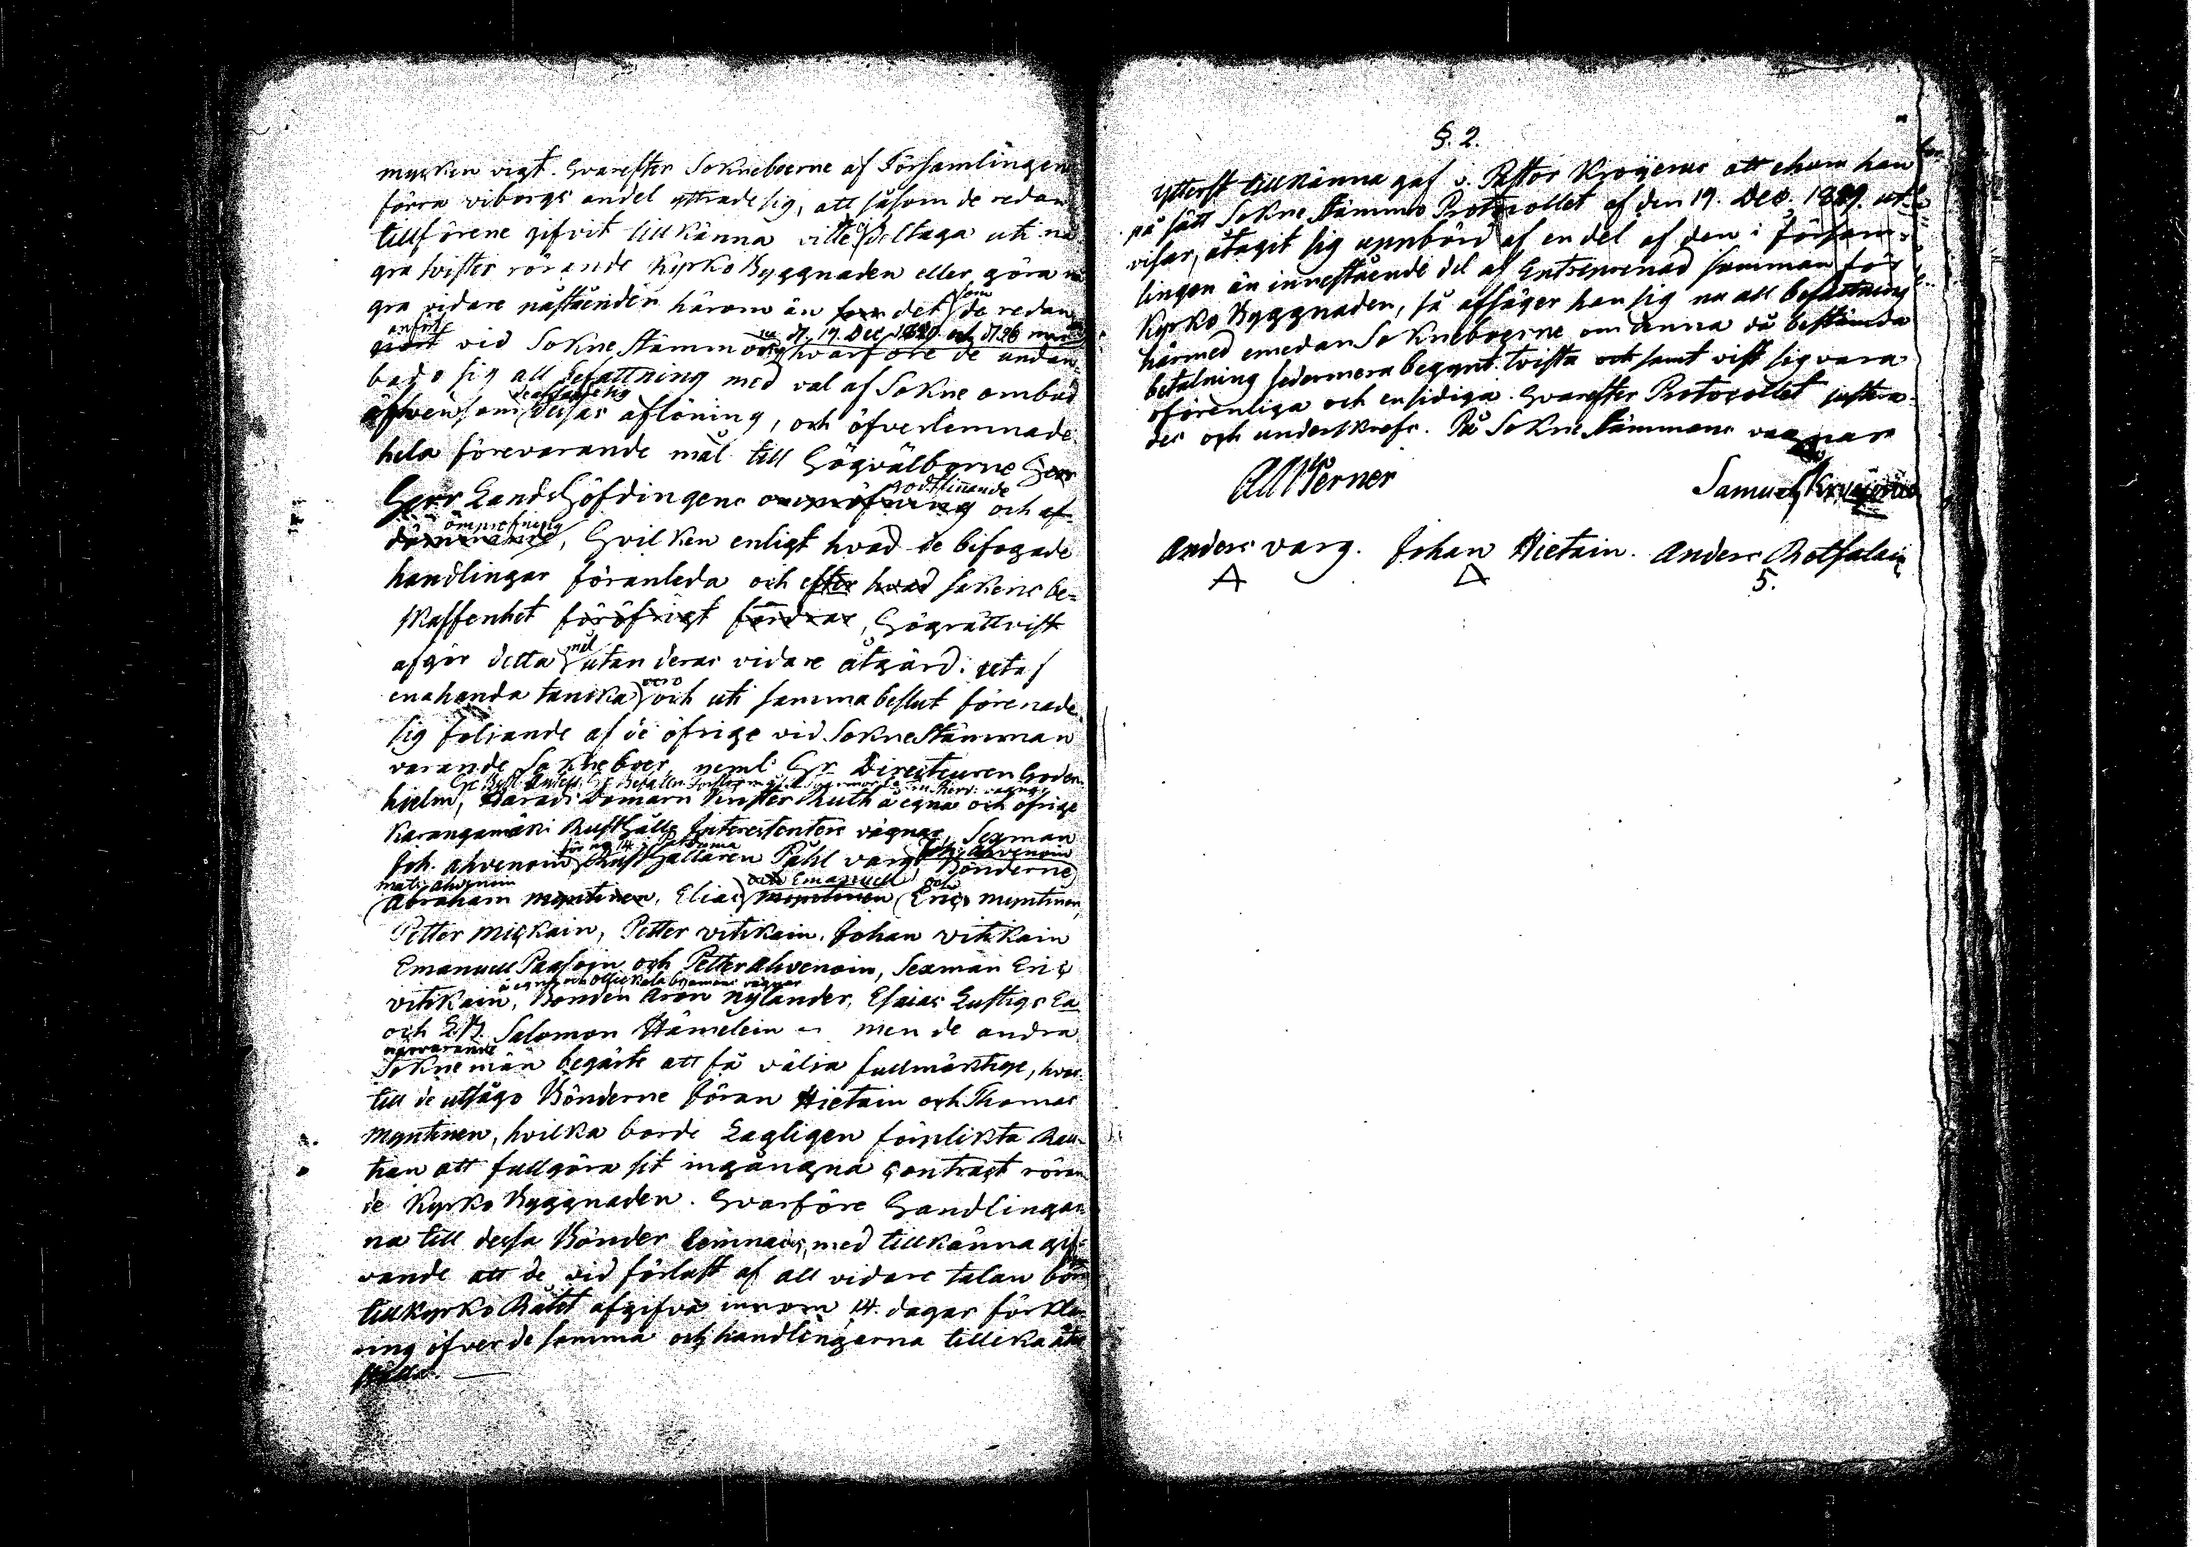 mycken vigt. Hvarefter Sokneboerne af Församlingens
förra viborgs andel yttrade sig, att såsom de redan
tillförene gifvit tillkänna ville ej deltaga uti nå
gra tvister rörande KyrkoByggnaden eller göra nå
gra vidare påståenden härom än det som de redan
anfört vid SokneStämmorne d. 19. Dec. 1829 och d. 26
hvarföre de undan-
bådo sig all befattning med val af Sokne ombud
äfven som de afsade sig dessas aflöning, och öfverlemnade
hela förevarande mål till Högvälborne
Herr LandsHöfdingens godtfinnande och
ömprofning, Hvilken enligt hvad de bifogade
handlingar föranleda och efter hvad sakens be=
skaffenhet föröfrigt fordrar, Högrättvist
afgör detta mål utan deras vidare åtgärd.
enahanda tanka voro och uti samma beslut förenade
sig föliande af de öfrige vid SokneStämman
varande Sokneboer neml: Hr Directeuren Godén
hielm, Härads Domarn å egna och öfrige
Karangamäki RustHålls Interessenters vägnar, Sexman
Joh. Ahvenoin RustHållaren Påhl varg Bönderne
Mats Ahvenoin
Abraham Myntinen, Elias och Emanuell Myntinen och Eric Myntinen,
Petter Mickain, Petter vitikain, Johan vitikain
Emanuell Paasoin och Petter Ahvenoin, Sexman Eric
vitikain, å egna och byamäns vägnar Bonden Aron Nylander, Esaias Lustigs Ea
och E.B. Salomon Hämelein men de andra
närvarande
Soknemän begärte att få välia fullmäktige, hvar-
till de utsågo Bönderne Jöran Hietain och Thomas
Myntinen, hvilka borde Lagligen förplikta Rau-
tian att fullgöra sit ingångna contract röran
de KyrkoByggnaden. Hvarföre Handlingar
na till dessa Bönder lemnades, med tillkänna gif-
vande att de vid förlust af all vidare talan böra
till KyrkoRådet afgifva innom 14. dagar förkla
ring öfver de samma och handlingarna tillika åter
ställa.
§. 2.
Ytterst tillkänna gaf v. Pastor Krogerus att ehuru han
på sätt SokneStämmo Protocollet af den 19. Dec. 1829. ut-
visar, åtagit sig uppbörd af en del af den i Försam-
lingen än innestående del af Entreprenad summan för
KyrkoByggnaden, så afsäger han sig nu all befattning
härmed emedan Sokneboerne om denna då bestämda
betalning sedermera begynt tvista och samt vist sig vara
oförenliga och ensidiga. Hvarefter Protocollet justera-
des och underskrefs. På SokneStämmans vägnar
Samuel Krogerus
Anders varg. Johan Hietain. Anders Rotsalain